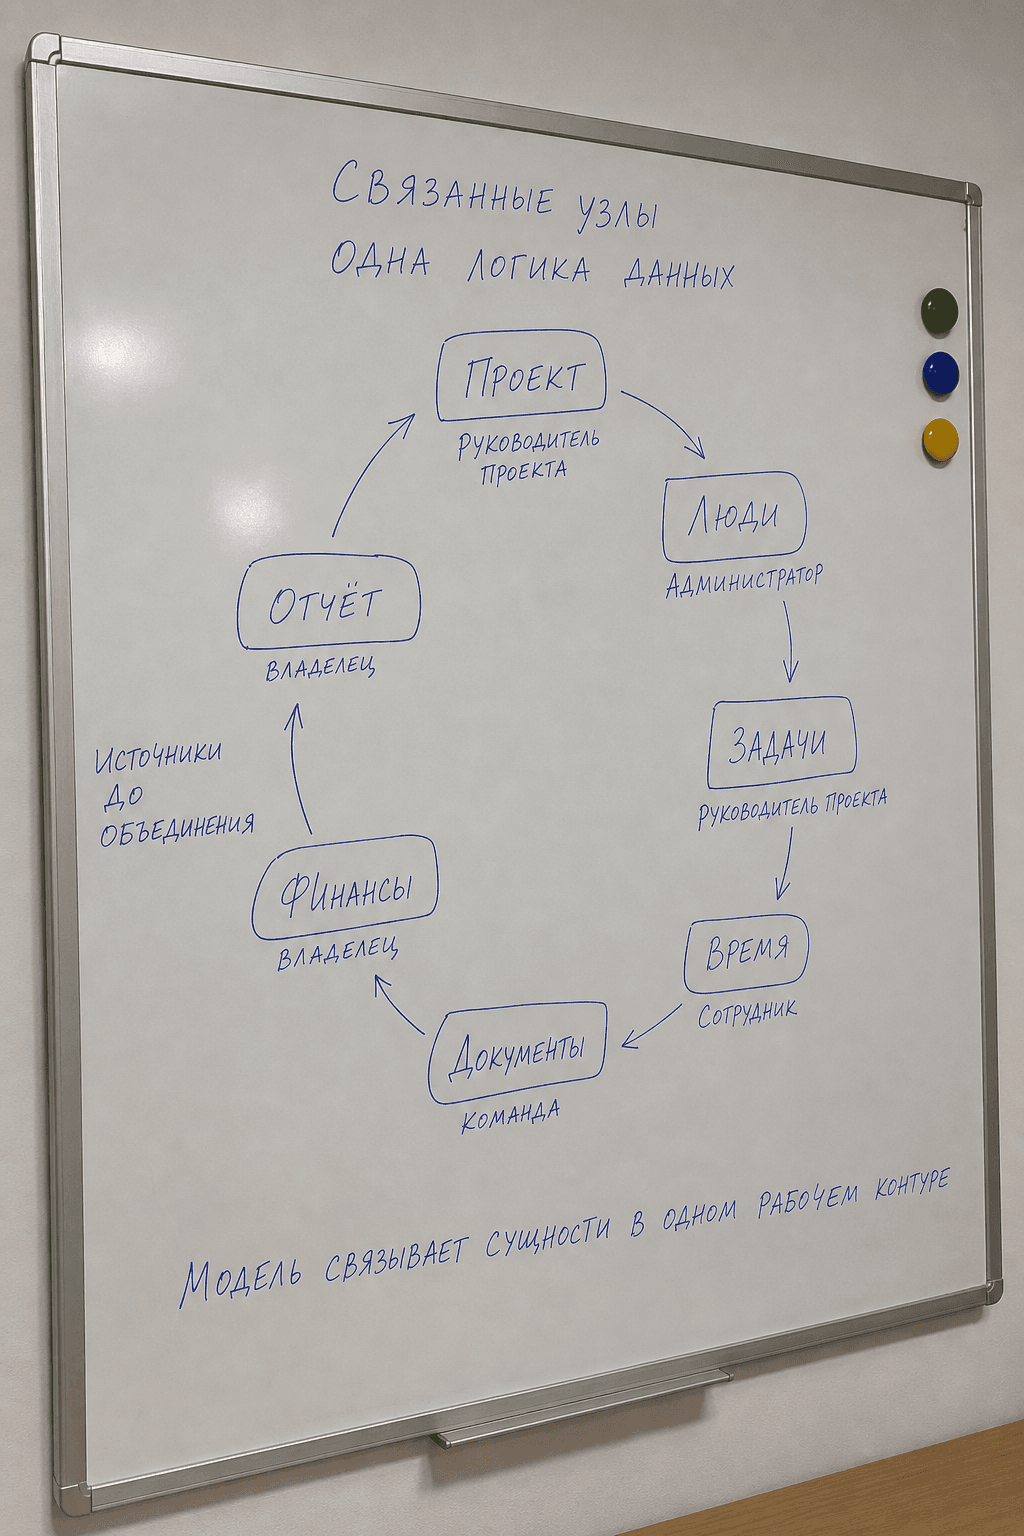 Связанные узлы
одна логика данных
Проект
руководитель
проекта
Люди
Администратор
Задачи
руководитель проекта
Время
Сотрудник
Документы
команда
Финансы
владелец
Отчёт
владелец
Источники
до
объединения
Модель связывает сущности в одном рабочем контуре